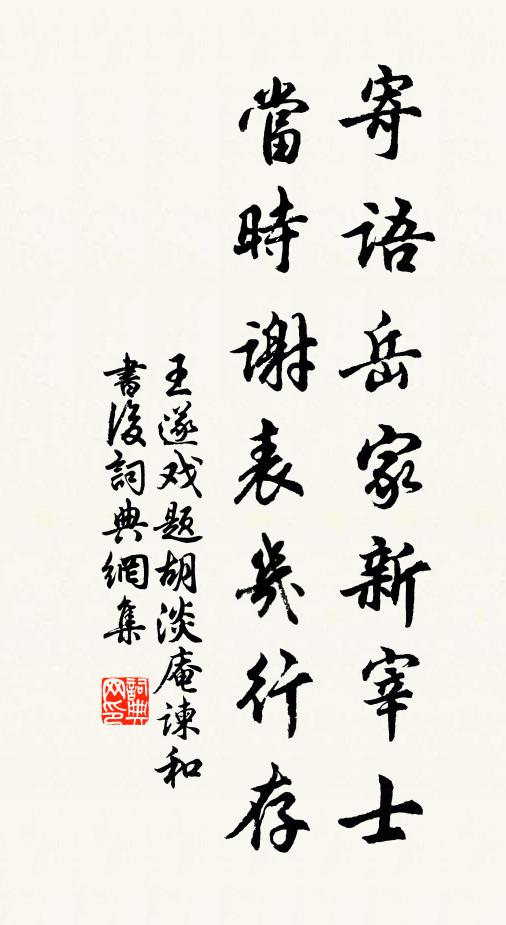 寄語岳家新宰士
當時謝表幾行存
王遂戏题胡淡庵諫和
書後詞典網集
詞典网印